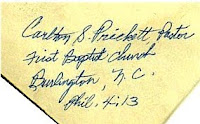 Carlton S. Prickett Pastor
First Baptist Church
Burlington, N.C.
Phil. 4:13